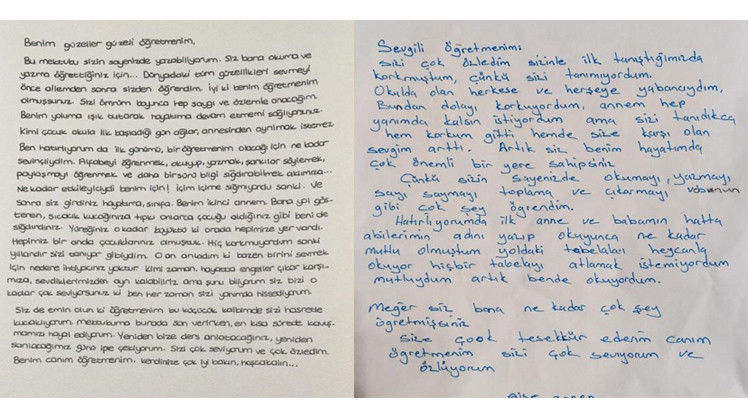 Benim güzeller güzeli öğretmenim,
Bu mektubu sizin sayenizde yazabiliyorum. Siz bana okuma ve
yazma öğrettiğiniz için... Dünyadaki tüm güzellikleri sevmeyi
önce ailemden sonra sizden öğrendim. İyi ki benim öğretmenim
olmuşsunuz. Sizi ömrüm boyunca hep saygı ve özlemle anacağım.
Benim yoluma ışık tutarak hayatıma devam etmemi sağlıyorsunuz.
Kimi çocuk okula ilk başladığı gün ağlar, annesinden ayrılmak istemez
Ben hatırlıyorum da ilk günümü, bir öğretmenim olacağı için ne kadar
sevinçliydim. Alfabeyi öğrenmek, okuyup, yazmak, şarkılar söylemek,
paylaşmayı öğrenmek ve daha bir sürü bilgi sığdırabilmek aklımıza...
Ne kadar etkileyiciydi benim için! İçim içime sığmıyordu sanki. Ve
sonra siz girdiniz hayatıma, sınıfa. Benim ikinci annem. Bana yol gös-
teren, sıcacık kucağınıza tıpkı onlarca çocuğu aldığınız gibi beni de
sığdırdınız. Yüreğiniz o kadar büyüktü ki orada hepimize yer vardı.
Hepimiz bir anda çocuklarınız olmuştuk. Hiç korkmuyordum sanki
yıllardır sizi tanıyor gibiydim. O an anladım ki bazen birini sevmek
için nedene ihtiyacınız yoktur kimi zaman. hayatta engeller çıkar karşı-
mıza, sevdiklerimizden ayrı kalabiliriz ama şunu biliyorum siz bizi o
kadar çok seviyorsunuz ki ben her zaman sizi yanımda hissediyorum.
Siz de emin olun ki öğretmenim bu küçücük kalbimde sizi hasretle
kucaklıyorum. Mektubuma burada son verirken, en kısa sürede kavuş-
mamızı hayal ediyorum. Yeniden bize ders anlatacağınız, yeniden
sarılacağımız günü iple çekiyorum. Sizi çok seviyorum ve çok özledim.
Benim canım öğretmenim. kendinize çok iyi bakın, hoşçakalın...
Sevgili öğretmenim;
sizi çok özledim sizinle ilk tanıştığımızda
korkmuştum, çünkü sizi tanımıyordum.
Okulda olan herkese ve herşeye yabancıydım,
Bundan dolayı korkuyordum, annem hep
yanımda kalsın istiyordum ama sizi tanıdıkça
hem korkum gitti hemde size karşı olan
sevgim arttı. Artık siz benim hayatımda
çok önemli bir yere sahipsiniz
Çünkü sizin sayenizde okumayı, yazmayı
sayı saymayı toplama ve çıkarmayı
gibi çok şey öğrendim.
Hatırlıyorumda ilk anne ve babamın hatta
abilerimin adını yazıp okuyunca ne kadar
mutlu olmuştum yoldaki tabelaları heycanla
okuyor hiçbir tabelayı atlamak istemiyordum
mutluydum artık bende okuyordum.
Meğer siz bana ne kadar çok şey
öğretmişsiniz
Size çook teşekkür ederim canım
öğretmenim sizi çok seviyorum ve
özlüyorum